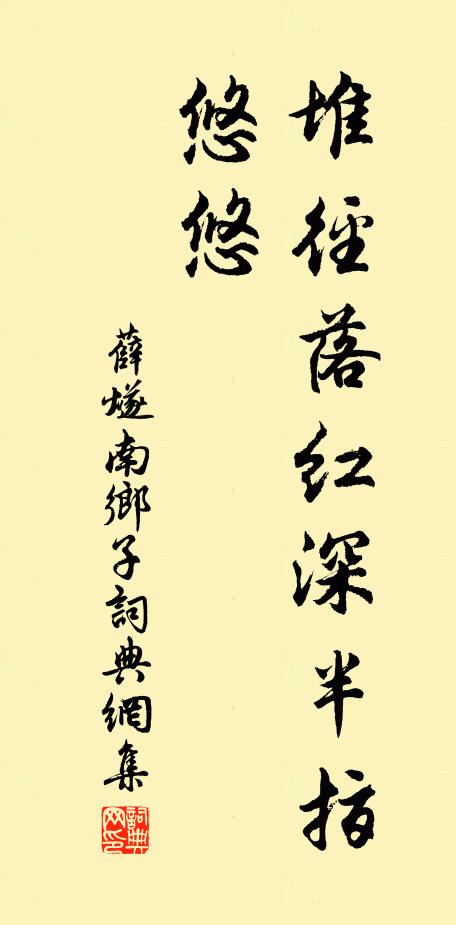 堆徑落紅深半指
悠悠
薛燧南鄉子詞典網集
詞典網印